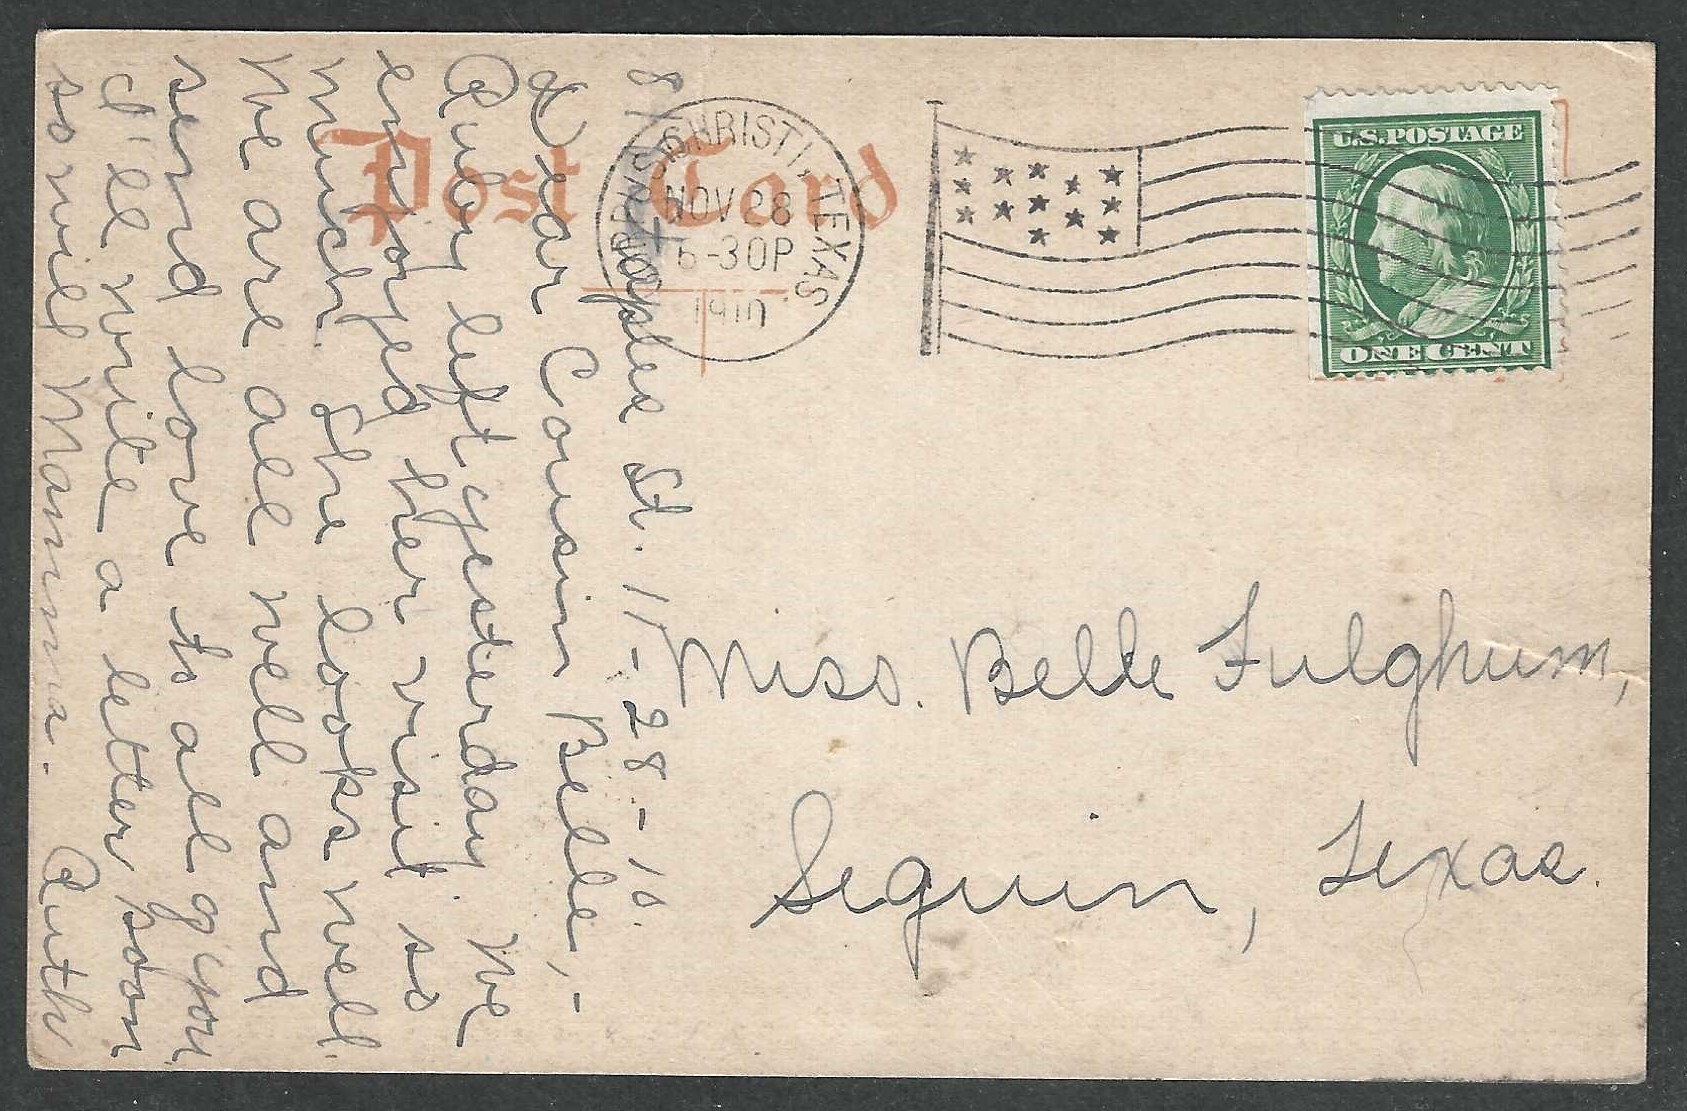 Post Card
CORPUS CHRISTI, TEXAS
NOV 28
6-30P
1910
U.S. POSTAGE
ONE CENT
Staples St. 11-28-10.
Dear Cousin Belle,-
Ruby left yesterday. We
enjoyed her visit so
much. She looks well.
We are all well and
send love to all of you.
I'll write a letter soon
so will Mamma. Ruth
Miss. Belle Fulghum,
Seguin, Texas.